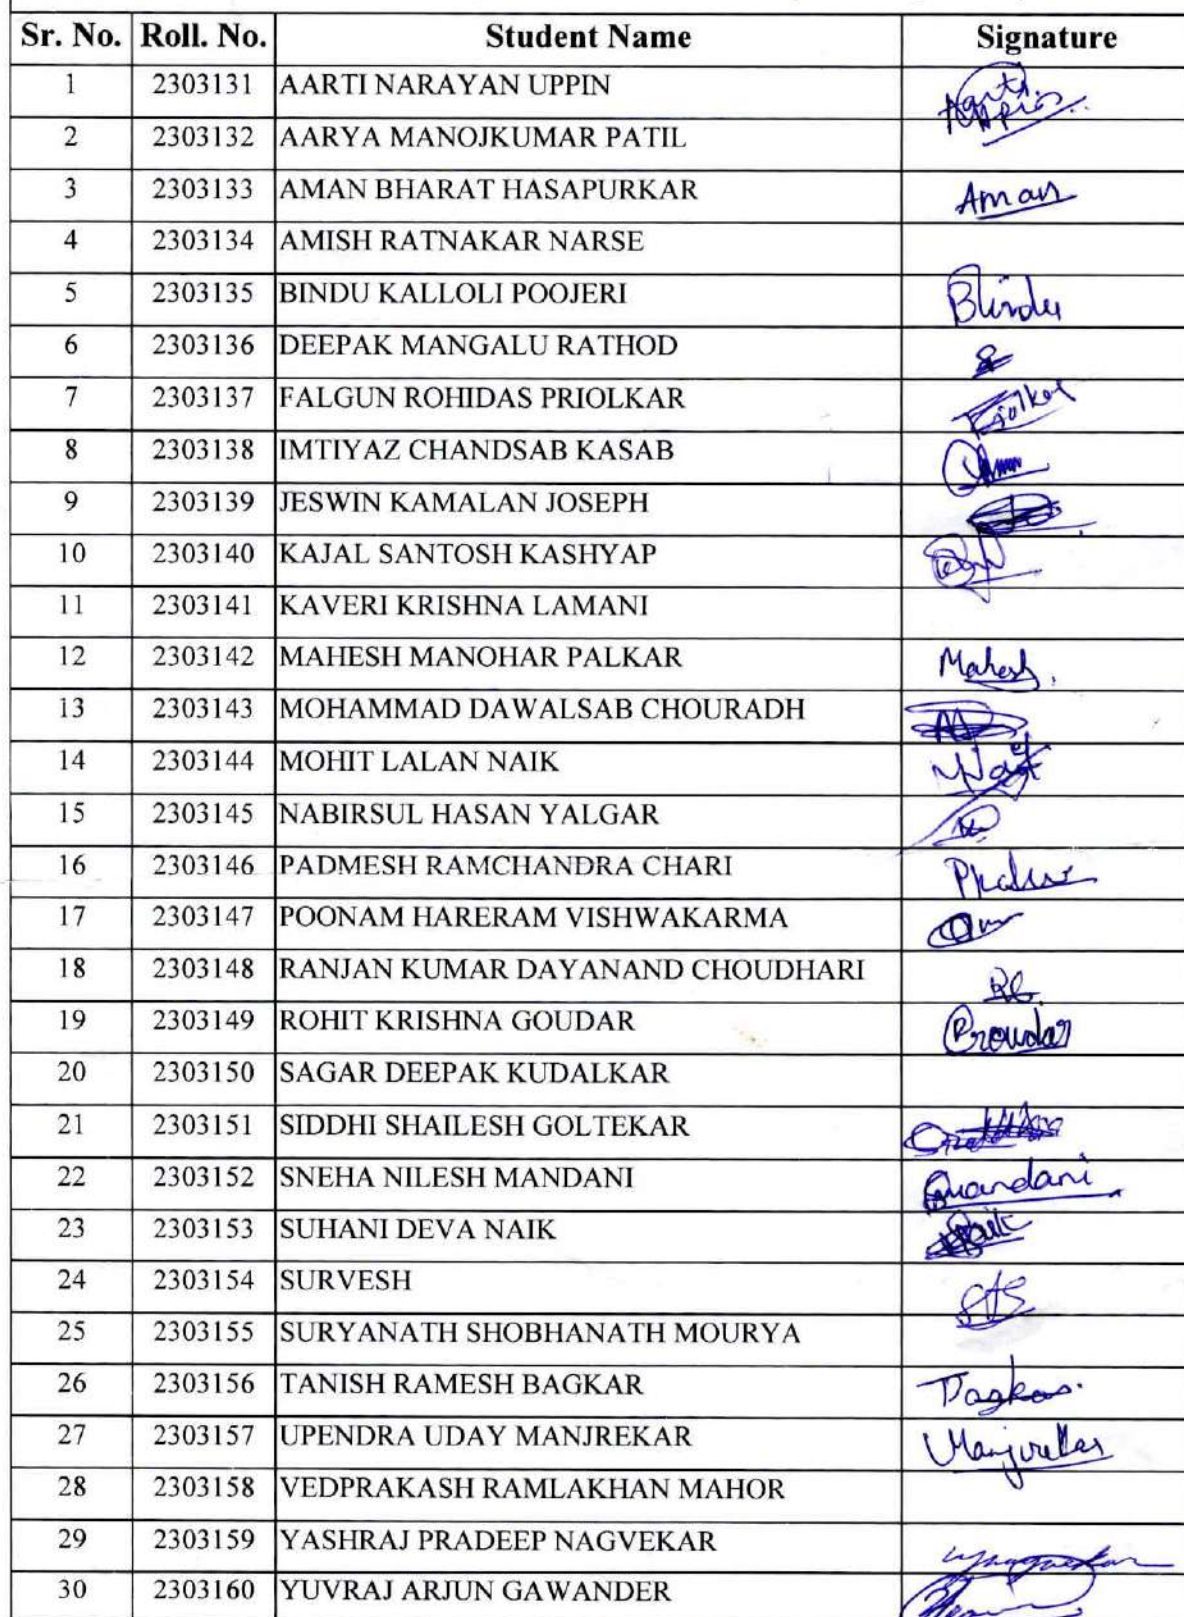 Sr. No. Roll. No. Student Name Signature
1 2303131 AARTI NARAYAN UPPIN Aarti Uppin
2 2303132 AARYA MANOJKUMAR PATIL
3 2303133 AMAN BHARAT HASAPURKAR Aman
4 2303134 AMISH RATNAKAR NARSE
5 2303135 BINDU KALLOLI POOJERI Bindu
6 2303136 DEEPAK MANGALU RATHOD
7 2303137 FALGUN ROHIDAS PRIOLKAR
8 2303138 IMTIYAZ CHANDSAB KASAB
9 2303139 JESWIN KAMALAN JOSEPH
10 2303140 KAJAL SANTOSH KASHYAP
11 2303141 KAVERI KRISHNA LAMANI
12 2303142 MAHESH MANOHAR PALKAR Mahesh
13 2303143 MOHAMMAD DAWALSAB CHOURADH
14 2303144 MOHIT LALAN NAIK
15 2303145 NABIRSUL HASAN YALGAR
16 2303146 PADMESH RAMCHANDRA CHARI
17 2303147 POONAM HARERAM VISHWAKARMA
18 2303148 RANJAN KUMAR DAYANAND CHOUDHARI
19 2303149 ROHIT KRISHNA GOUDAR
20 2303150 SAGAR DEEPAK KUDALKAR
21 2303151 SIDDHI SHAILESH GOLTEKAR
22 2303152 SNEHA NILESH MANDANI
23 2303153 SUHANI DEVA NAIK
24 2303154 SURVESH
25 2303155 SURYANATH SHOBHANATH MOURYA
26 2303156 TANISH RAMESH BAGKAR
27 2303157 UPENDRA UDAY MANJREKAR
28 2303158 VEDPRAKASH RAMLAKHAN MAHOR
29 2303159 YASHRAJ PRADEEP NAGVEKAR
30 2303160 YUVRAJ ARJUN GAWANDER